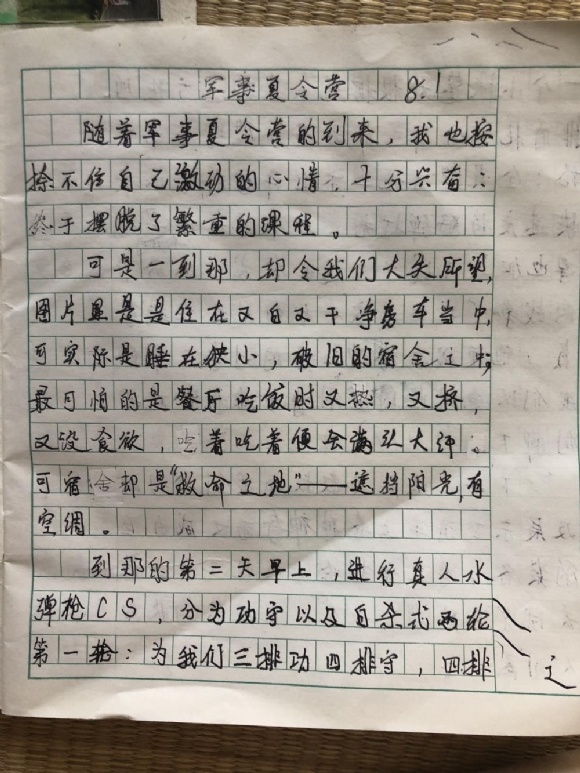 军事夏令营 8.1
随着军事夏令营的到来，我也按
捺不住自己激动的心情，十分兴奋：
终于摆脱了繁重的课程。
可是一到那，却令我们大失所望，
图片里是是住在又白又干净房车当中，
可实际是睡在狭小，破旧的宿舍之中；
最可怕的是餐厅吃饭时又热，又挤，
又没食欲，吃着吃着便会满头大汗。
可宿舍却是“救命之地”——遮挡阳光，有
空调。
到那的第二天早上，进行真人水
弹枪CS，分为功守以及自杀式两轮
第一轮：为我们三排功四排守，四排